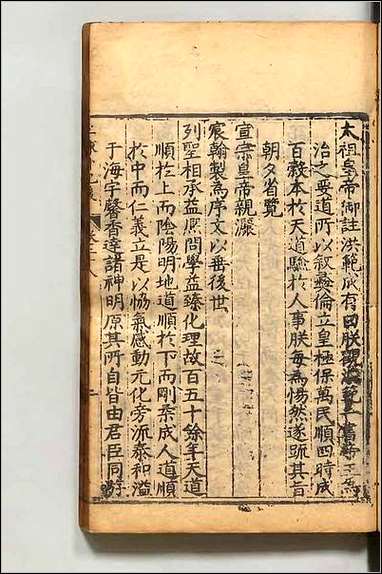 太祖皇帝御註洪範成有曰朕觀洪範一書
治之要道所以叙彝倫立皇極保萬民順四時成
百穀本於天道驗於人事朕每為惕然遂疏其旨
朝夕省覽
宣宗皇帝親灑
宸翰製為序文以垂後世
列聖相承益熈問學益臻化理故百五十餘年天道
順於上而陰陽明地道順於下而剛柔成人道順
於中而仁義立是以恊氣感動元化旁流泰和溢
于海宇馨香達諸神明原其所自皆由君臣同